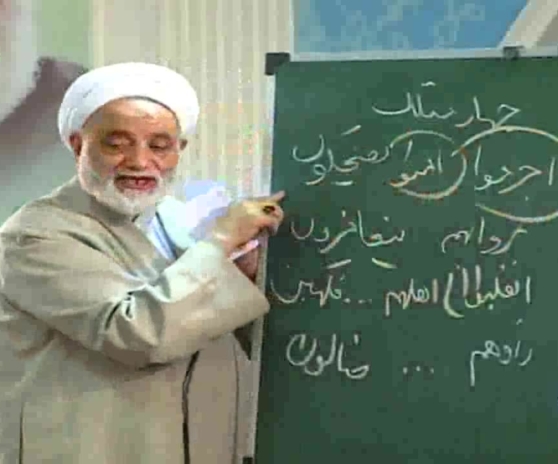 چهار متلک
اجرموا آمنوا یضحکون
مروا بهم یتغامزون
انقلبوا الی اهلهم ... فکهین
راوهم ... ضالون